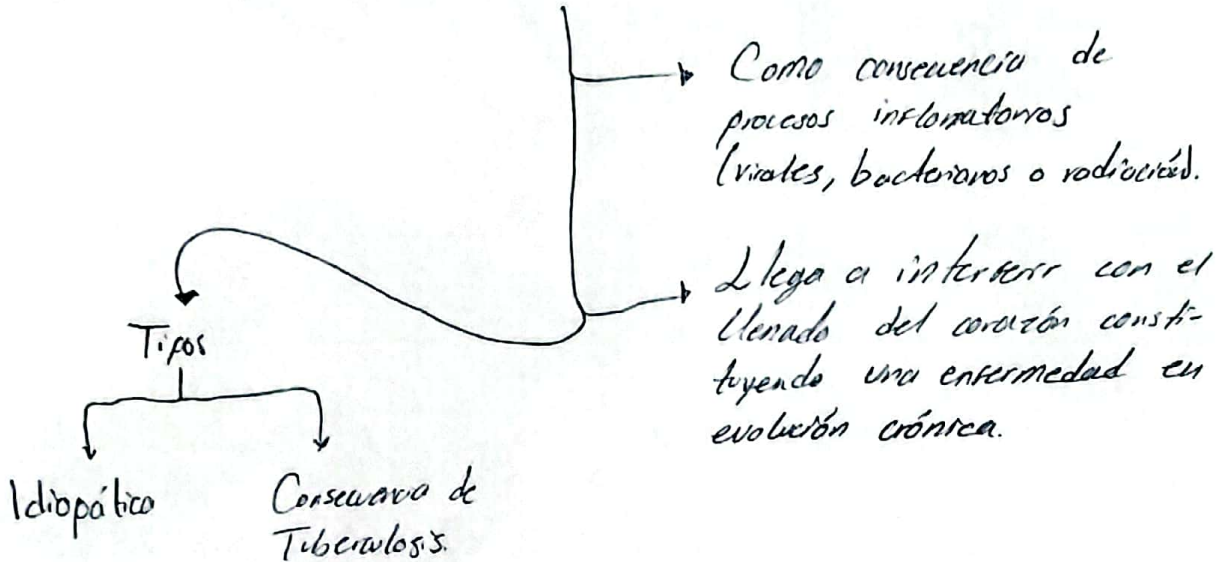 Como consecuencia de
procesos inflamatorios
(virales, bacterianos o radiación).
Llega a interferir con el
llenado del corazón consti-
tuyendo una enfermedad en
evolución crónica.
Tipos
Idiopático
Consecuencia de
Tuberculosis.